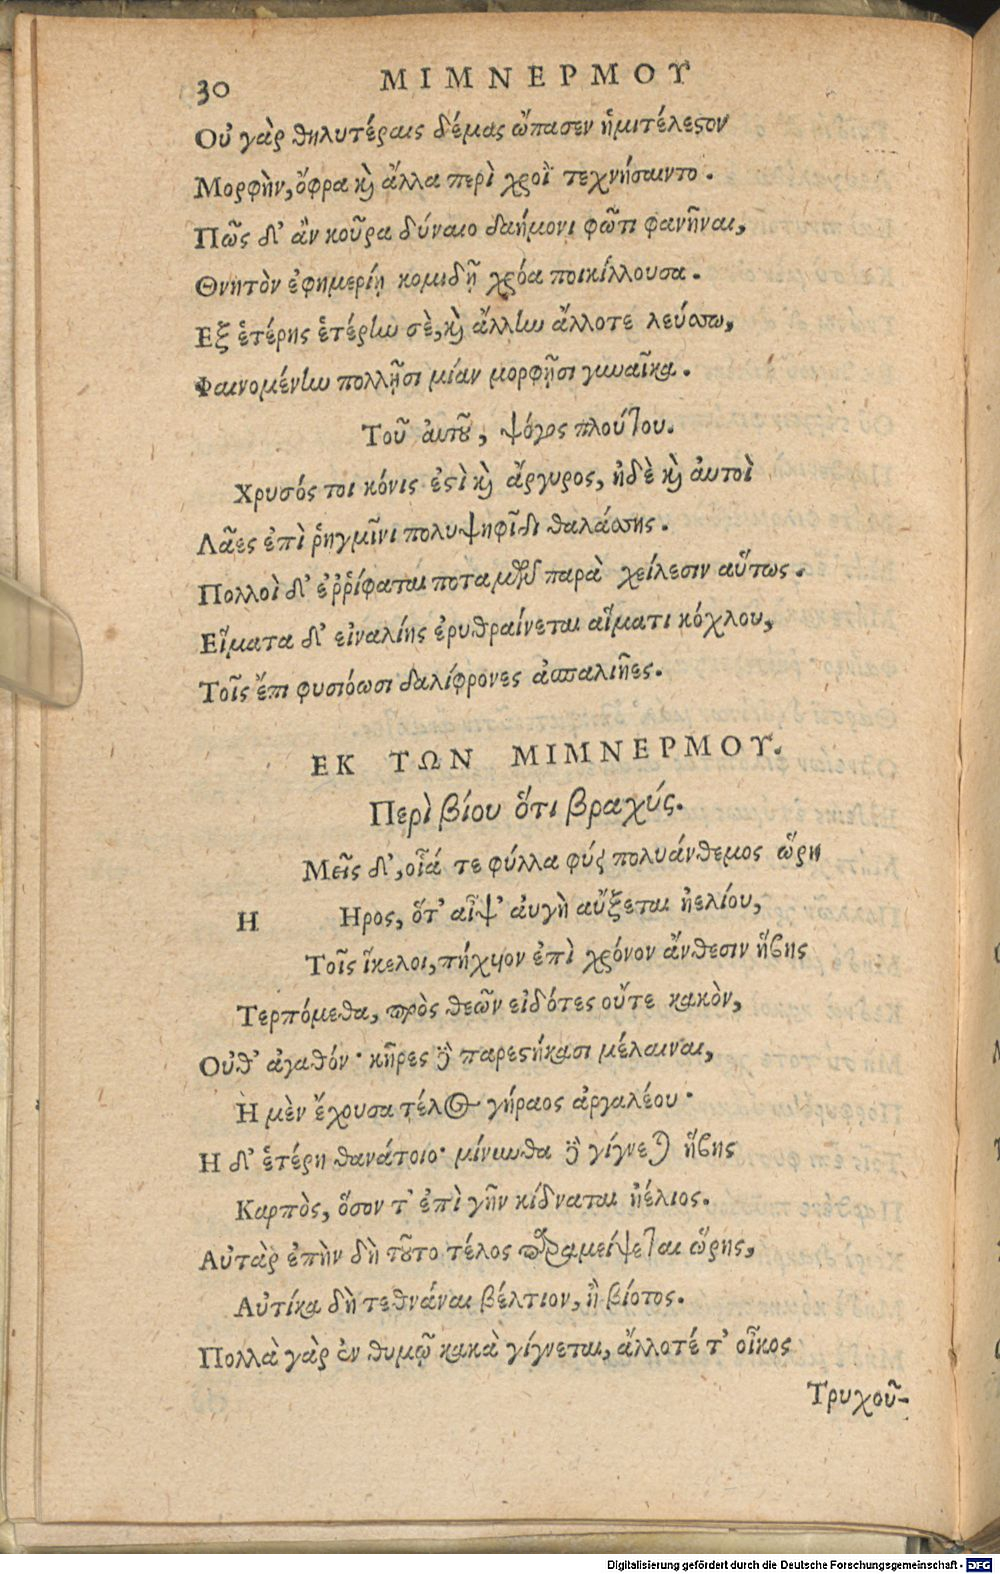 30 ΜΙΜΝΕΡΜΟΥ
Οὐ γὰρ θηλυτέραις δέμας ὤπασεν ἡμιτέλεστον
Μορφὴν, ὄφρα καὶ ἄλλα περὶ χροῒ τεχνήσαιντο.
Πῶς δ' ἂν κοῦρα δύναιο δαήμονι φῶτι φανῆναι,
Θνητὸν ἐφημερίῃ κομιδῇ χρόα ποικίλλουσα.
Εξ ἑτέρης ἑτέρην σὲ, καὶ ἄλλην ἄλλοτε λεύσσω,
Φαινομένην πολλῇσι μίαν μορφῇσι γυναῖκα.
Τοῦ αὐτοῦ, ψόγος πλούτου.
Χρυσός τοι κόνις ἐστὶ καὶ ἄργυρος, ἠδὲ καὶ αὐτοὶ
Λᾶες ἐπὶ ῥηγμῖνι πολυψηφῖδι θαλάσσης.
Πολλοὶ δ' ἐῤῥίφαται ποταμοῦ παρὰ χείλεσιν αὔτως.
Εἵματα δ' εἰναλίης ἐρυθραίνεται αἵματι κόχλου,
Τοῖς ἔπι φυσιόωσι δαλίφρονες ἀσπαλιῆες.
ΕΚ ΤΩΝ ΜΙΜΝΕΡΜΟΥ.
Περὶ βίου ὅτι βραχύς.
Η Μεῖς δ', οἷά τε φύλλα φύει πολυάνθεμος ὥρη
Ηρος, ὅτ' αἶψ' αὐγὴ αὔξεται ἠελίου,
Τοῖς ἴκελοι, πήχυιον ἐπὶ χρόνον ἄνθεσιν ἥβης
Τερπόμεθα, πρὸς θεῶν εἰδότες οὔτε κακὸν,
Οὔθ' ἀγαθόν· κῆρες δὲ παρεστήκασι μέλαιναι,
Ἡ μὲν ἔχουσα τέλος γήραος ἀργαλέου·
Η δ' ἑτέρη θανάτοιο· μίνυνθα δὲ γίγνεται ἥβης
Καρπὸς, ὅσον τ' ἐπὶ γῆν κίδναται ἠέλιος.
Αὐτὰρ ἐπὴν δὴ τοῦτο τέλος παραμείψεται ὥρης,
Αὐτίκα δὴ τεθνάναι βέλτιον, ἢ βίοτος.
Πολλὰ γὰρ ἐν θυμῷ κακὰ γίγνεται, ἄλλοτέ τ' οἶκος
Τρυχοῦ-
Digitalisierung gefördert durch die Deutsche Forschungsgemeinschaft - DFG